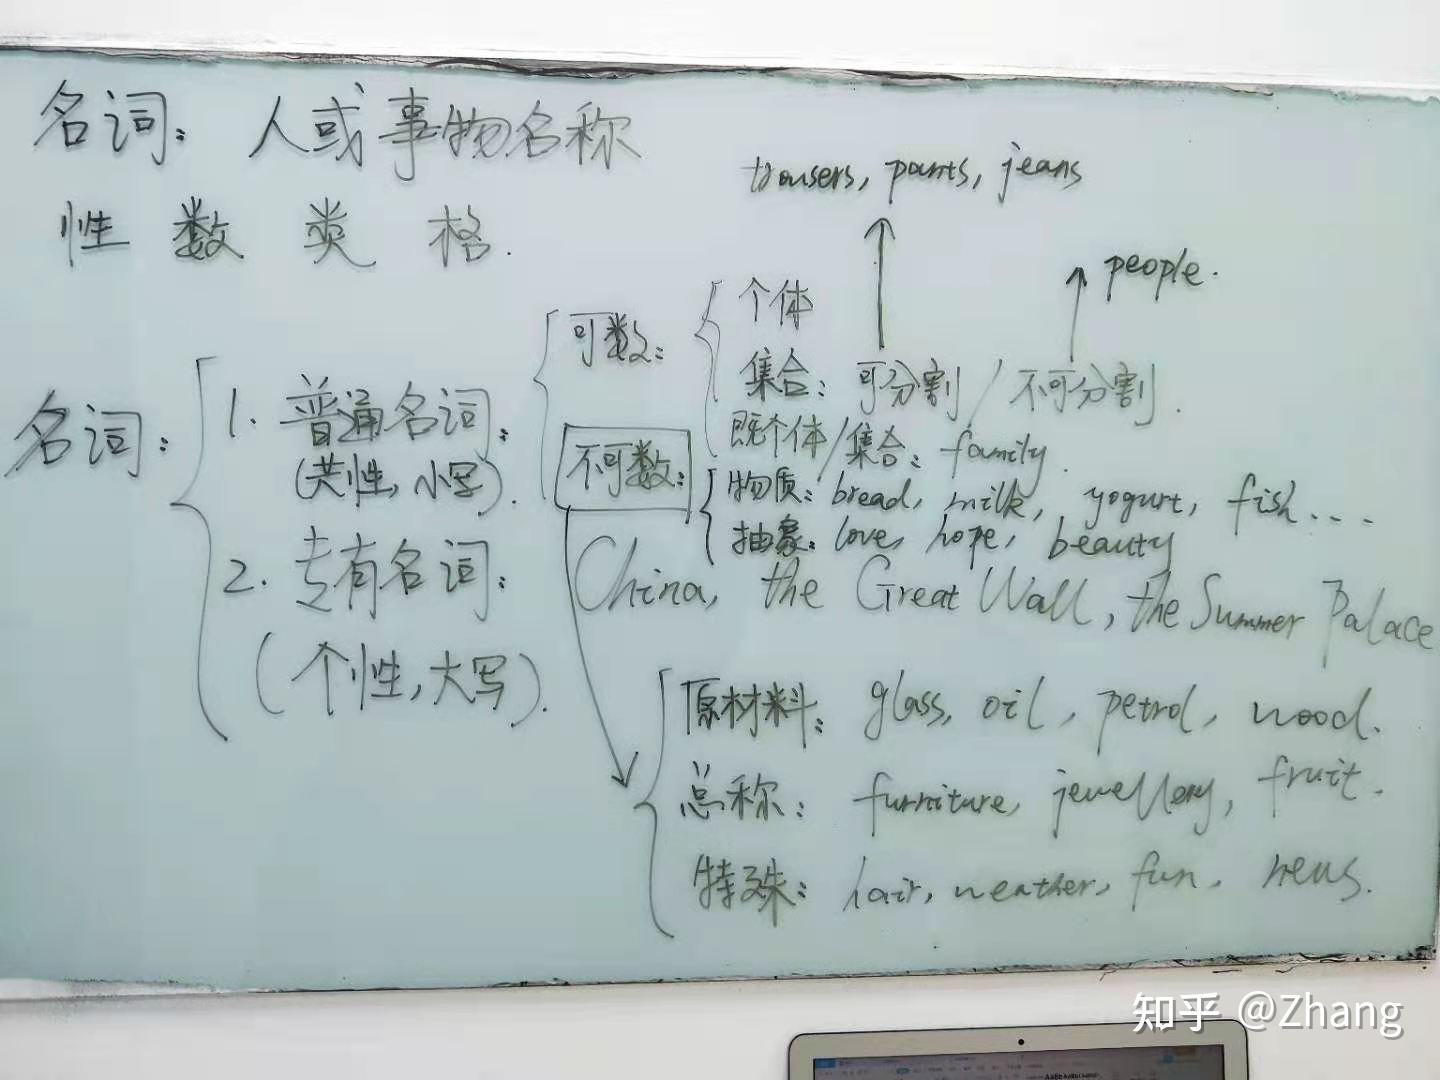 名词：人或事物名称
性 数 类 格.
trousers, pants, jeans
people.
名词：
1. 普通名词：
(共性,小写).
可数：
个体
集合：可分割/不可分割.
既个体/集合：family.
不可数：
物质：bread, milk, yogurt, fish....
抽象：love, hope, beauty
2. 专有名词：China, the Great Wall, the Summer Palace
(个性,大写).
原材料：glass, oil, petrol, wood.
总称：furniture, jewellery, fruit.
特殊：hair, weather, fun, news.
知乎 @Zhang